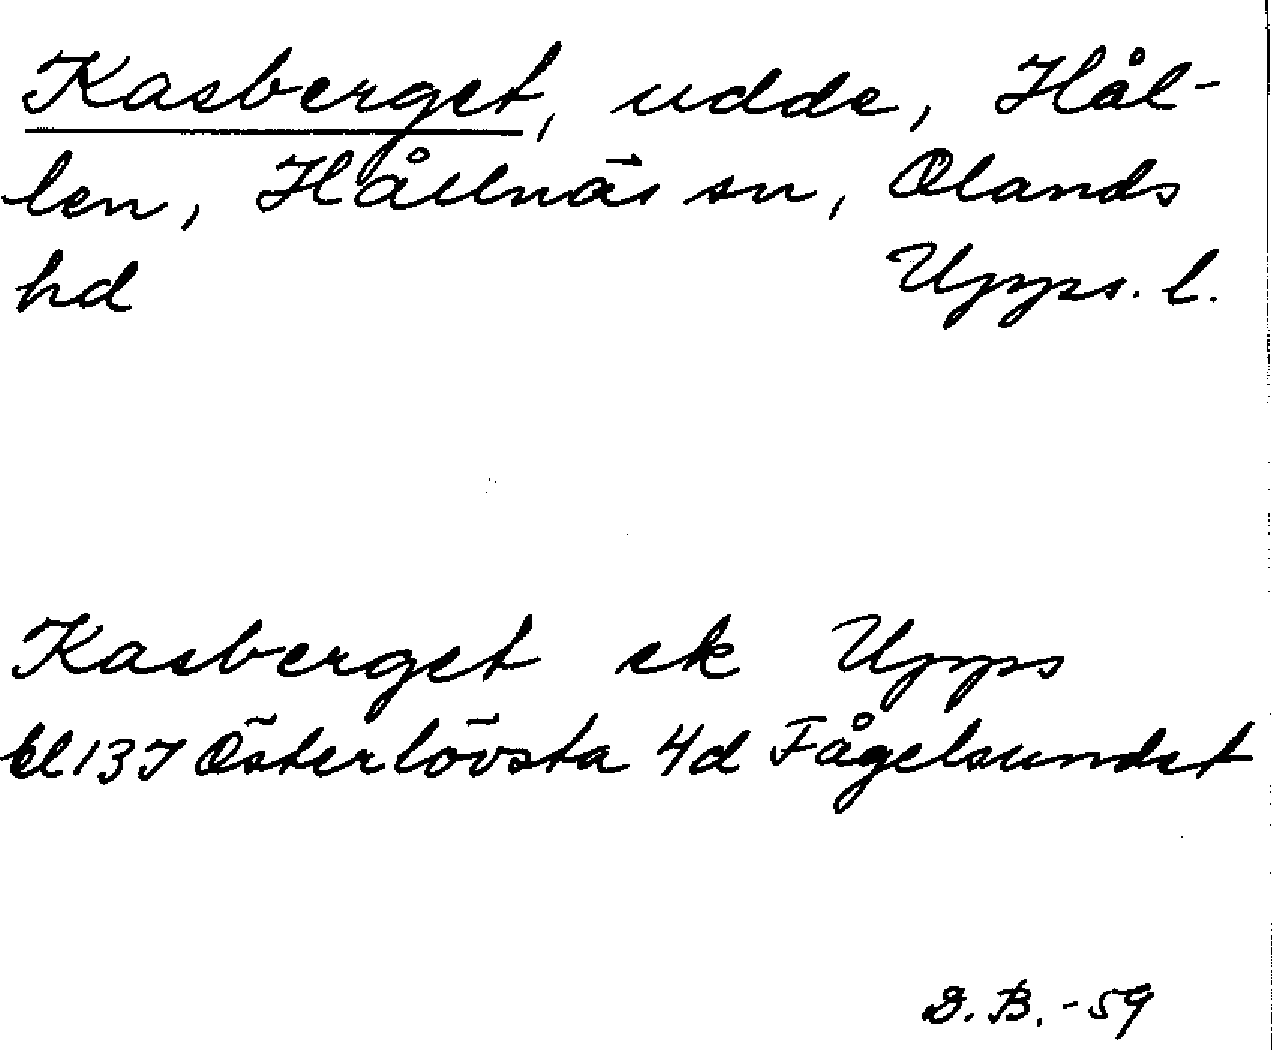 Kasberget, udde, Hål-
len, Hållnäs sn, Olands
hd Upps. l.
Kasberget ek Upps
bl 137 Österlövsta 4d Fågelsundet
D.B. -59